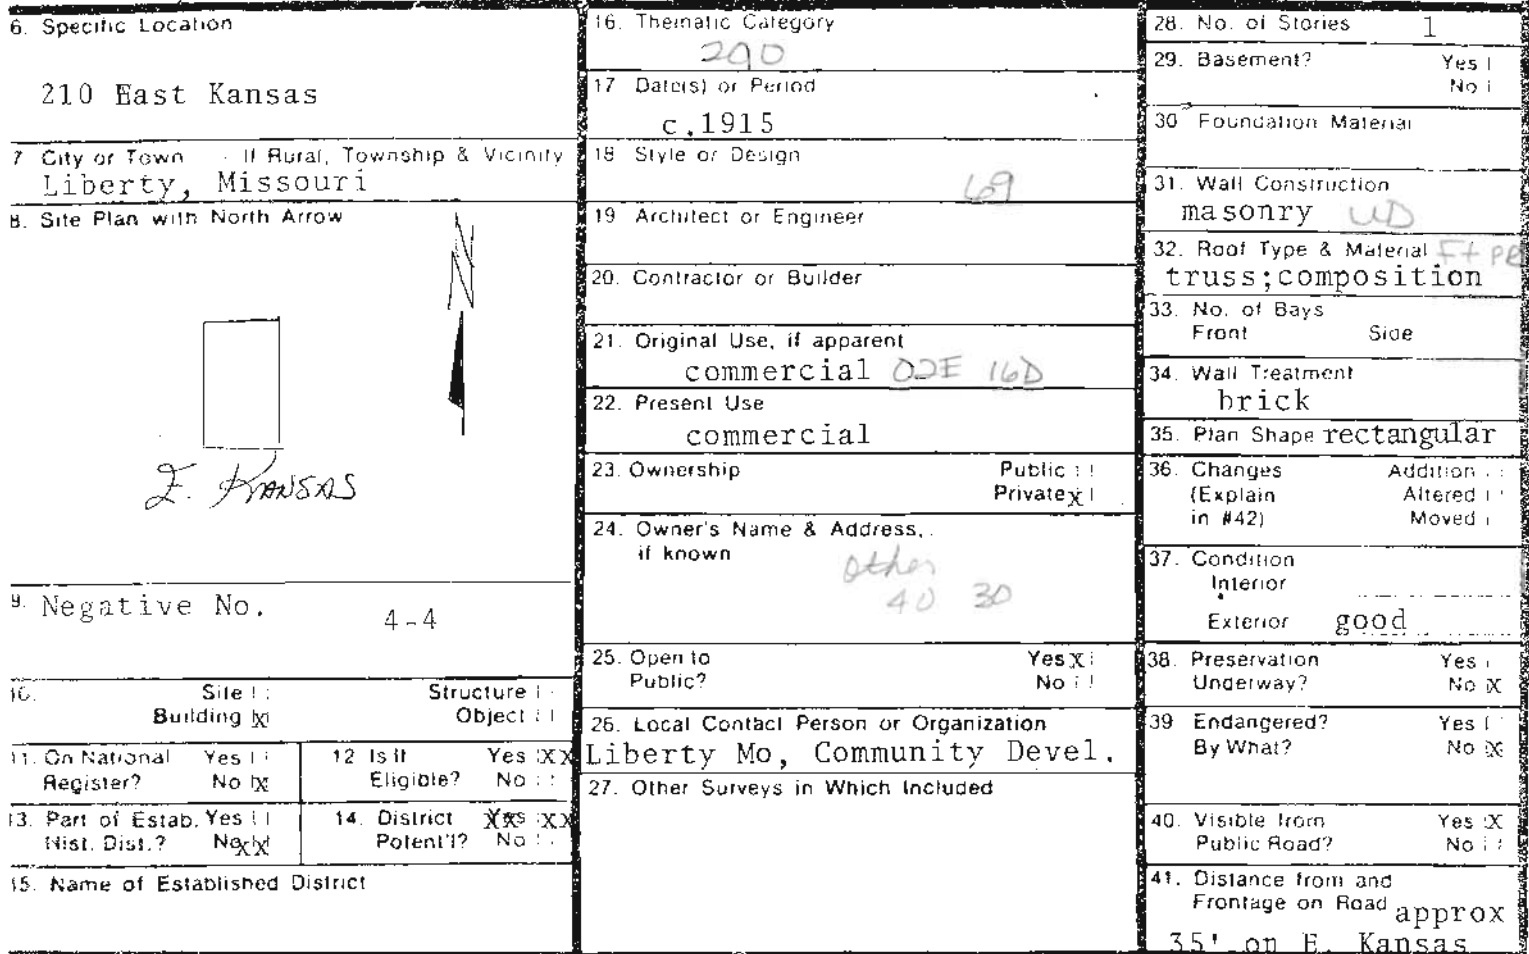 6. Specific Location
210 East Kansas
7 City or Town If Rural, Township & Vicinity
Liberty, Missouri
8. Site Plan with North Arrow
N
E. KANSAS
9. Negative No. 4-4
10. Site
Structure
Building X
Object
11. On National Register? Yes
No X
12 Is it Eligible? Yes XX
No
13. Part of Estab. Hist. Dist.? Yes
No XX
14. District Potent'l? Yes XX
No
15. Name of Established District
16. Thematic Category
290
17 Date(s) or Period
c.1915
18 Style or Design
69
19 Architect or Engineer
20. Contractor or Builder
21. Original Use, if apparent
commercial 02E 16D
22. Present Use
commercial
23. Ownership Public
Private X
24. Owner's Name & Address,
if known
other
40 30
25. Open to Yes X
Public? No
26. Local Contact Person or Organization
Liberty Mo, Community Devel.
27. Other Surveys in Which Included
28. No. of Stories 1
29. Basement? Yes
No
30 Foundation Material
31. Wall Construction
masonry UD
32. Roof Type & Material Ft
truss;composition
33. No. of Bays
Front Side
34. Wall Treatment
brick
35. Plan Shape rectangular
36. Changes Addition
(Explain Altered
in #42) Moved
37. Condition
Interior
Exterior good
38. Preservation Yes
Underway? No X
39 Endangered? Yes
By What? No X
40. Visible from Yes X
Public Road? No
41. Distance from and
Frontage on Road approx
35' on E. Kansas